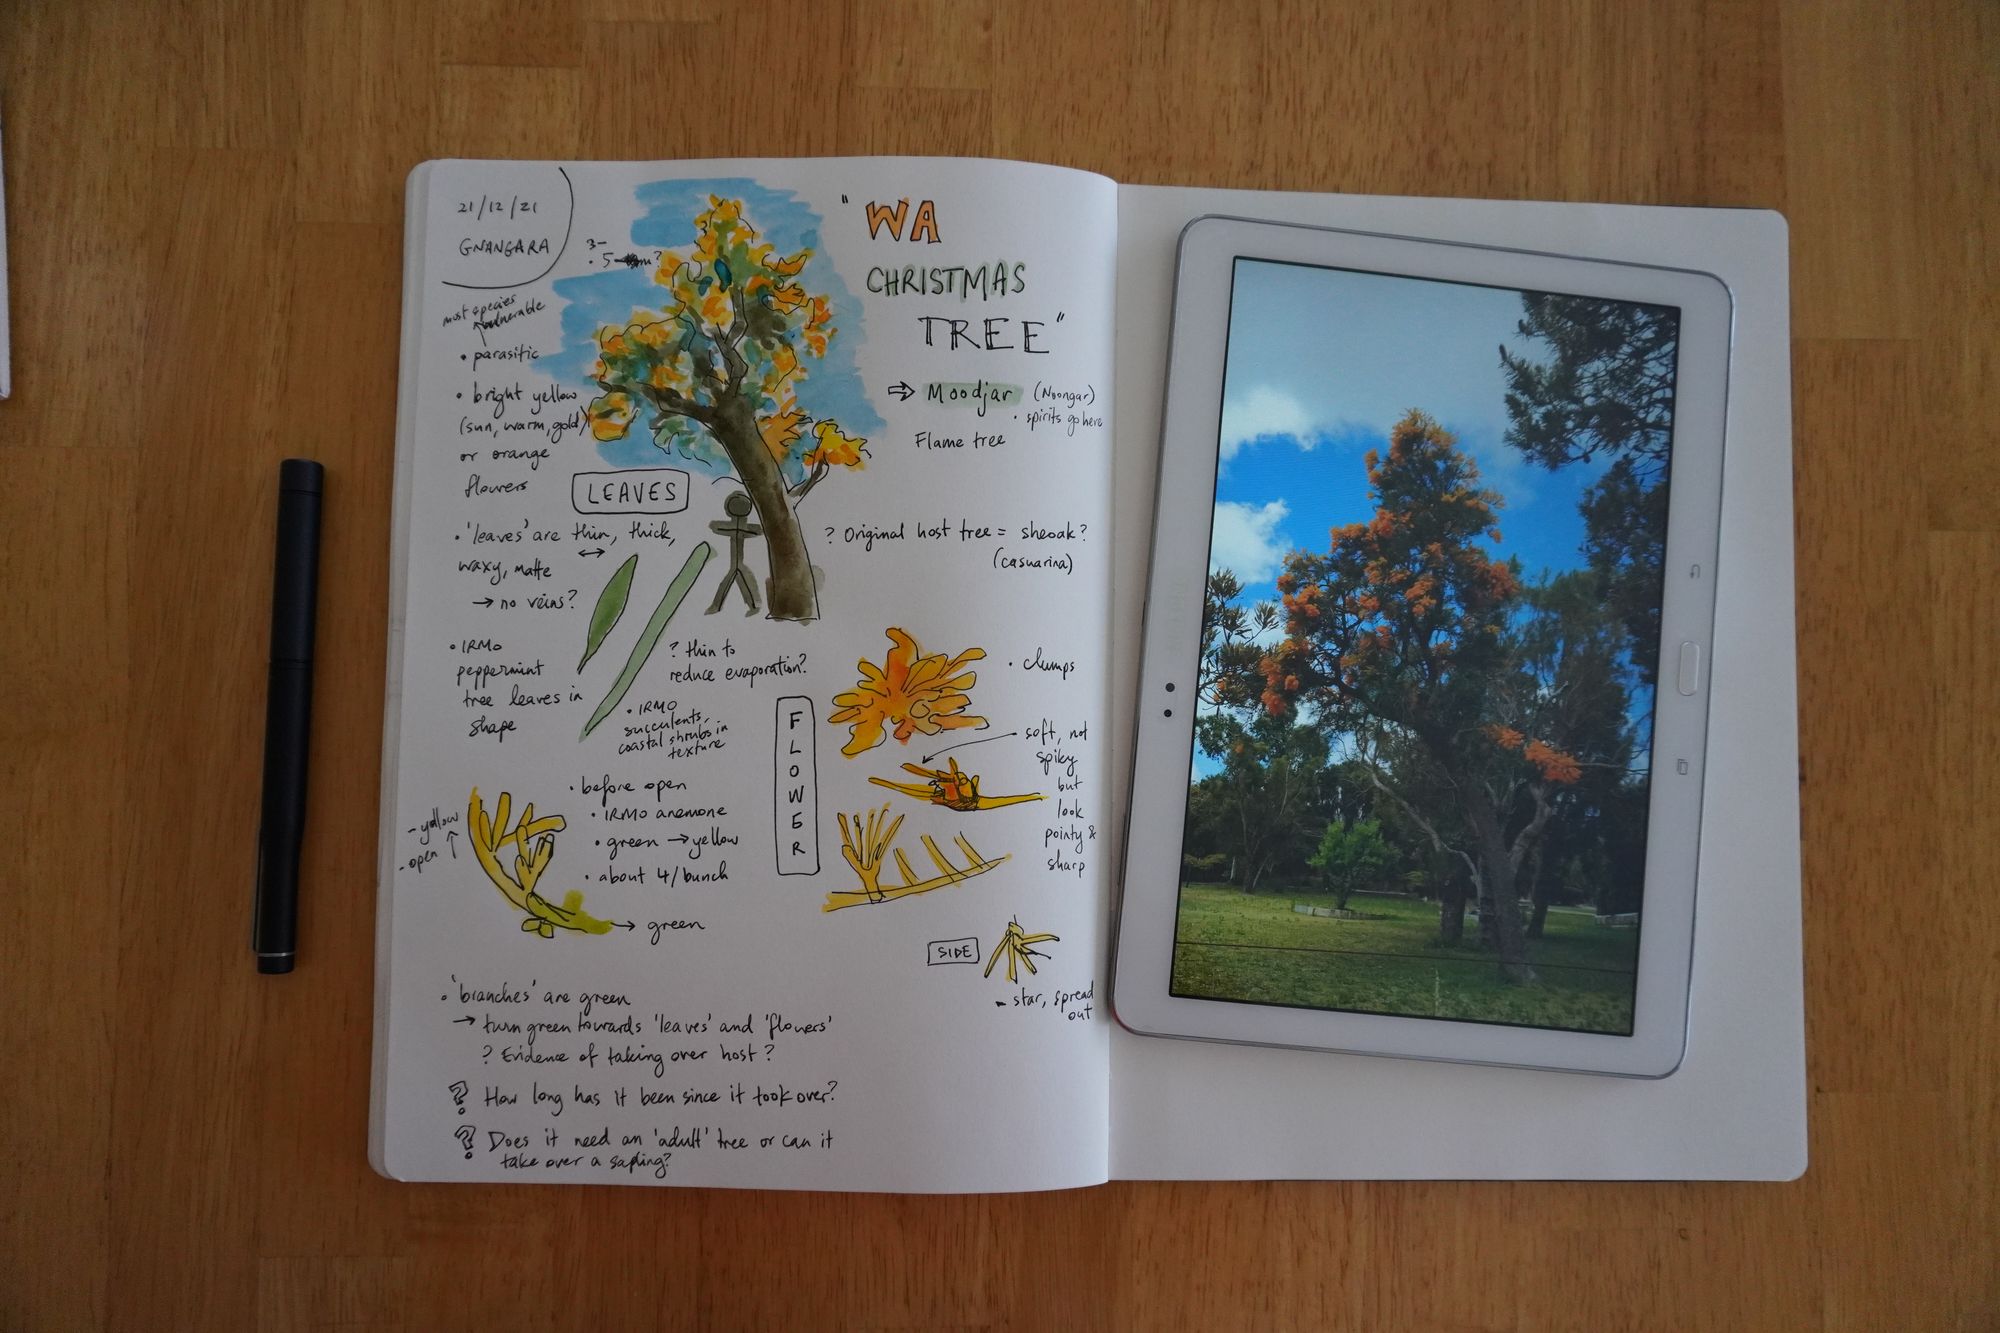 21/12/21
GNANGARA
3-
• 5 m?
"WA
CHRISTMAS
TREE"
⇒ Moodjar (Noongar)
• spirits go here
Flame tree
most species
vulnerable
• parasitic
• bright yellow
(sun, warm, gold)
or orange
flowers
LEAVES
• 'leaves' are thin, thick,
waxy, matte
→ no veins?
? Original host tree = sheoak?
(casuarina)
• IRMO
peppermint
tree leaves in
shape
? thin to
reduce evaporation?
• IRMO
succulents,
coastal shrubs in
texture
FLOWER
• clumps
• soft, not
spiky
but
look
pointy &
sharp
• before open
• IRMO anemone
• green → yellow
• about 4/bunch
- yellow
- open
→ green
SIDE
- star, spread
out
• 'branches' are green
→ turn green towards 'leaves' and 'flowers'
? Evidence of taking over host?
? How long has it been since it took over?
? Does it need an 'adult' tree or can it
take over a sapling?